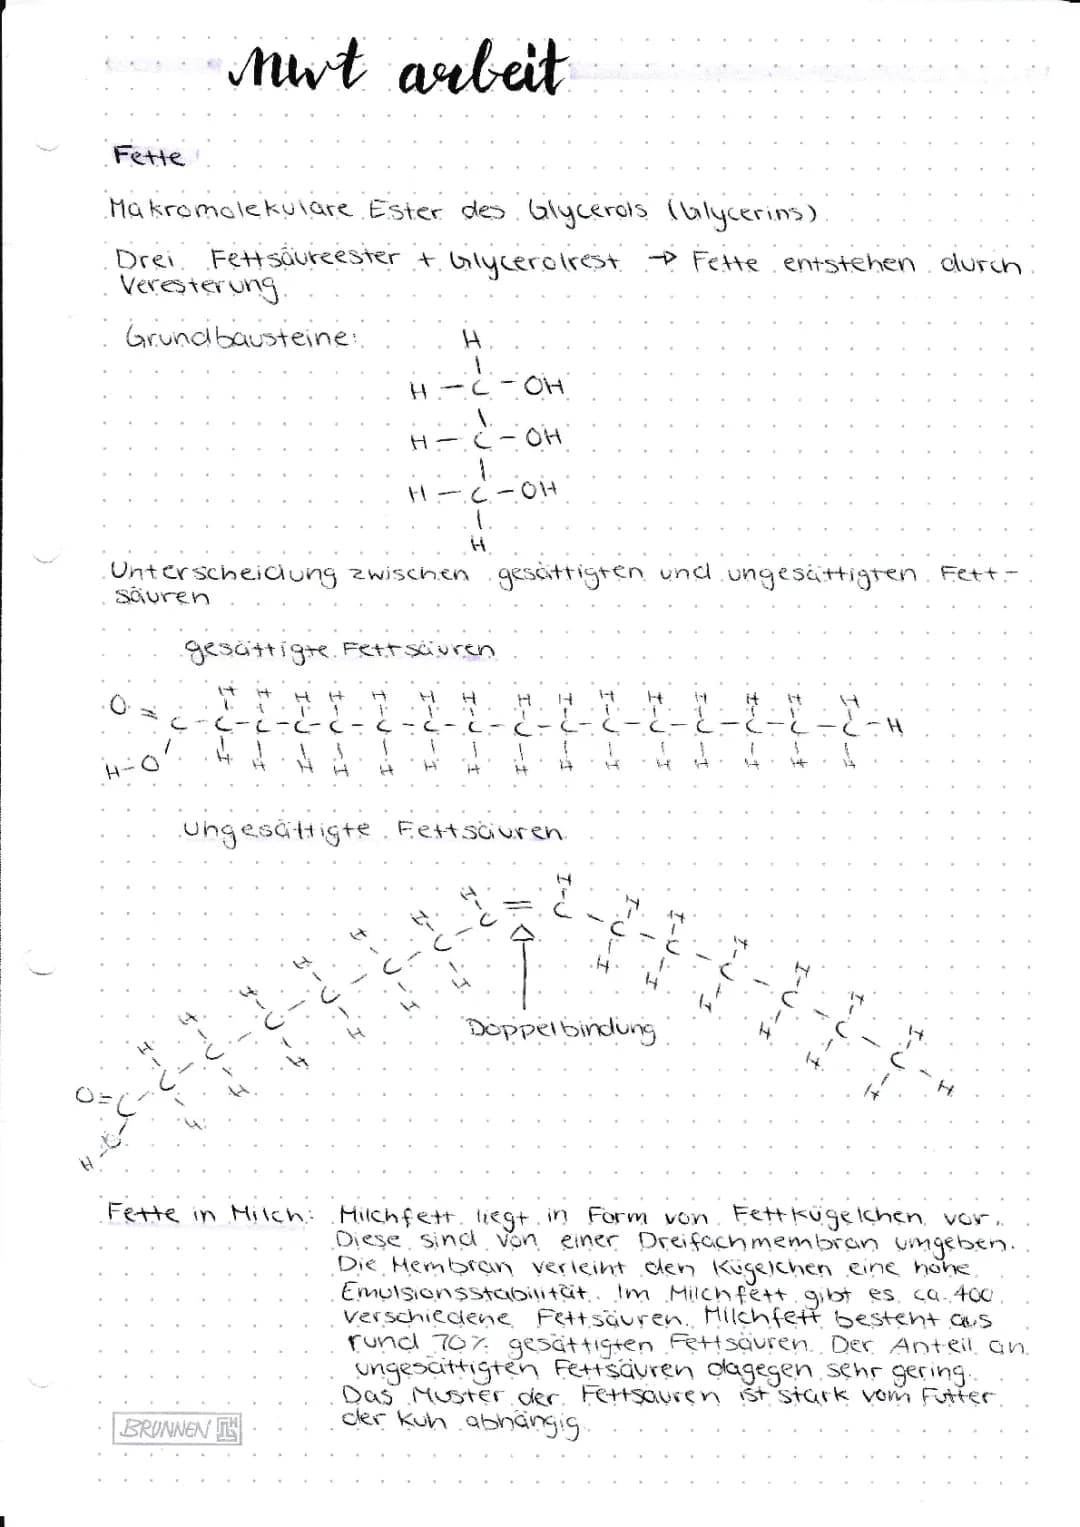 Nwt arbeit
Fette
Makromolekulare Ester des Glycerols (Glycerins)
Drei Fettsäureester + Glycerolrest → Fette entstehen durch
Veresterung
Grundbausteine:
H
H - C - OH
H - C - OH
H - C - OH
H
Unterscheidung zwischen gesättigten und ungesättigten Fett-
säuren
gesättigte Fettsäuren
H H H H H H H H H H H H H H H
O = C - C - C - C - C - C - C - C - C - C - C - C - C - C - C - C - H
H-O H H H H H H H H H H H H H H H
ungesättigte Fettsäuren
Doppelbindung
Fette in Milch: Milchfett liegt in Form von Fettkügelchen vor.
Diese sind von einer Dreifachmembran umgeben.
Die Membran verleiht den Kügelchen eine hohe
Emulsionsstabilität. Im Milchfett gibt es ca. 400
verschiedene Fettsäuren. Milchfett besteht aus
rund 70% gesättigten Fettsäuren. Der Anteil an
ungesättigten Fettsäuren dagegen sehr gering.
Das Muster der Fettsäuren ist stark vom Futter
der Kuh abhängig.
BRUNNEN